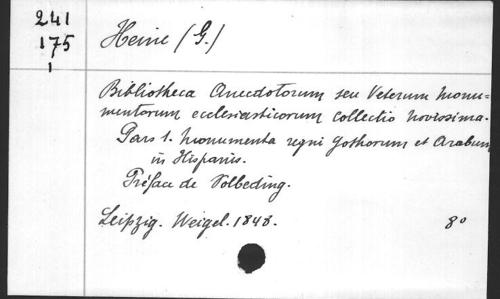 241
175
1
Heine (G.)
Bibliotheca Anecdotorum seu Veterum monu-
mentorum ecclesiasticorum collectio novissima.
Pars 1. Monumenta regni Gothorum et Arabum
in Hispaniis.
Préface de Volbeding.
Leipzig. Weigel. 1848. 8º